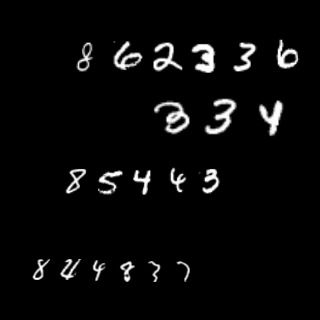 862336
334
85443
844837